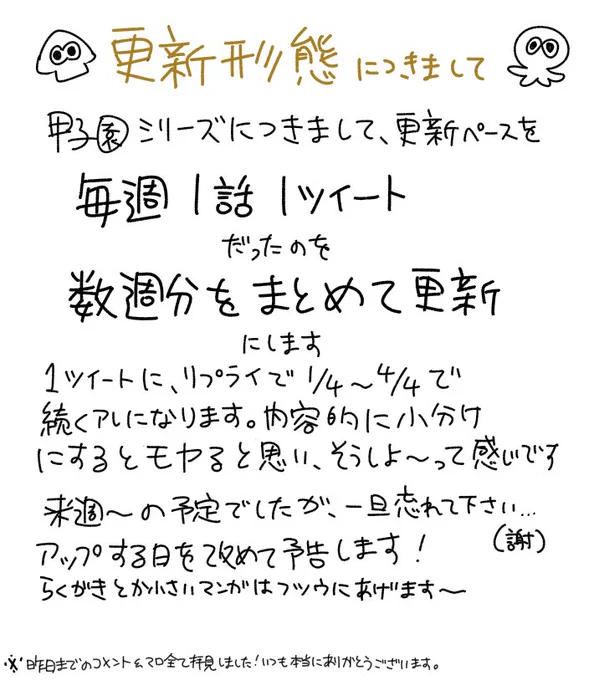 更新形態につきまして
甲子園シリーズにつきまして、更新ペースを
毎週1話1ツイート
だったのを
数週分をまとめて更新
にします
1ツイートに、リプライで1/4〜4/4で
続くアレになります。内容的に小分け
にするとモヤると思い、そうしよ〜って感じです
来週〜の予定でしたが、一旦忘れて下さい…
(謝)
アップする日を改めて予告します!
らくがきとか小さいマンガはフツウにあげます〜
※昨日までのコメント&マロ全て拝見しました!いつも本当にありがとうございます。